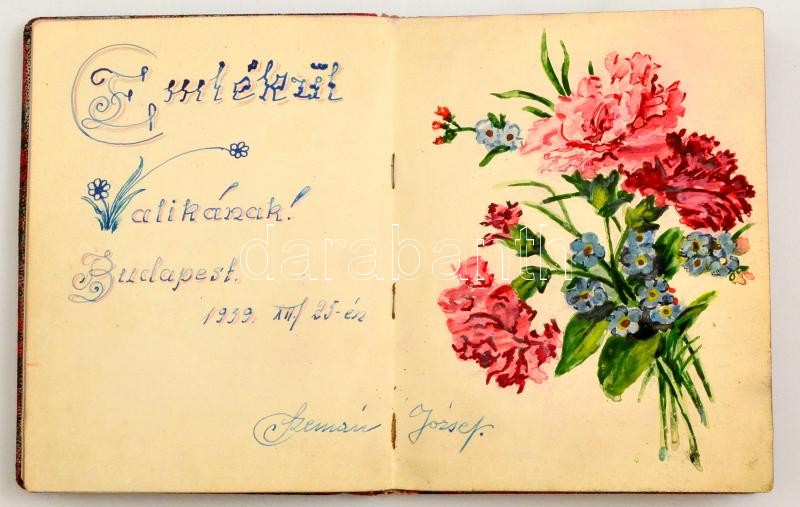 Emlékül
Valikának!
Budapest.
1939. XII/ 25-én
Szemán József.
darabanth